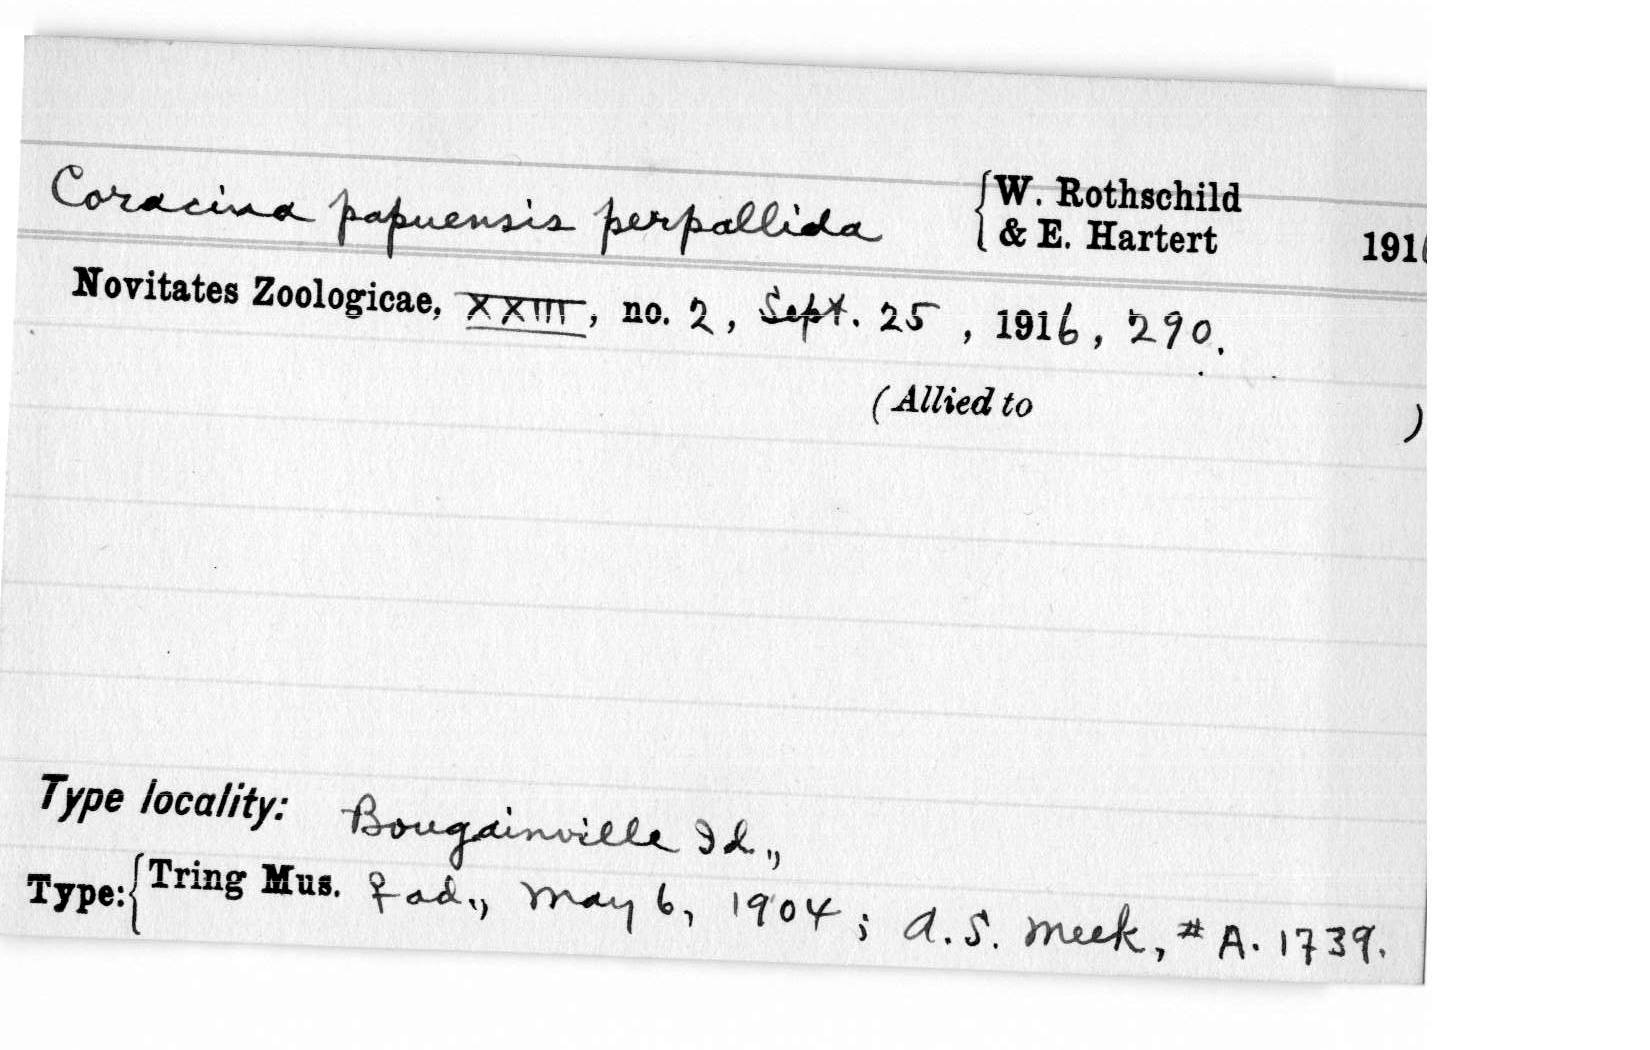 Coracina papuensis perpallida {W. Rothschild & E. Hartert 1916
Novitates Zoologicae, XXIII, no. 2, Sept. 25, 1916, 290.
(Allied to )
Type locality: Bougainville Id.,
Type: {Tring Mus. ♀ ad., May 6, 1904; A. S. Meek, # A. 1739.